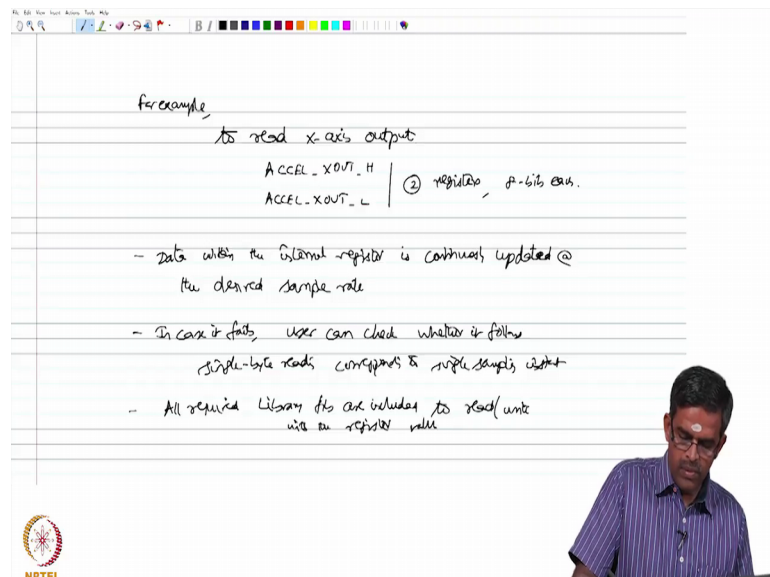 File Edit View Insert Actions Tools Help
B I
For example,
to read x-axis output
ACCEL_XOUT_H
ACCEL_XOUT_L
② registers, 8-bits each.
- Data within the internal register is continuously updated @
the desired sample rate
- In case it fails, user can check whether it follows
single-byte reads corresponds to single sampling instant
- All required Library fns are included to read/write
with the register value
NPTEL